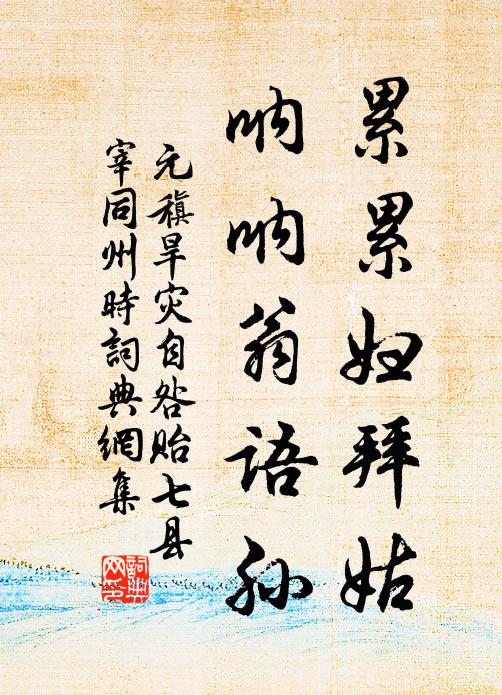 累累妇拜姑
呐呐翁语孙
元稹旱灾自咎贻七县
宰同州时詞典網集